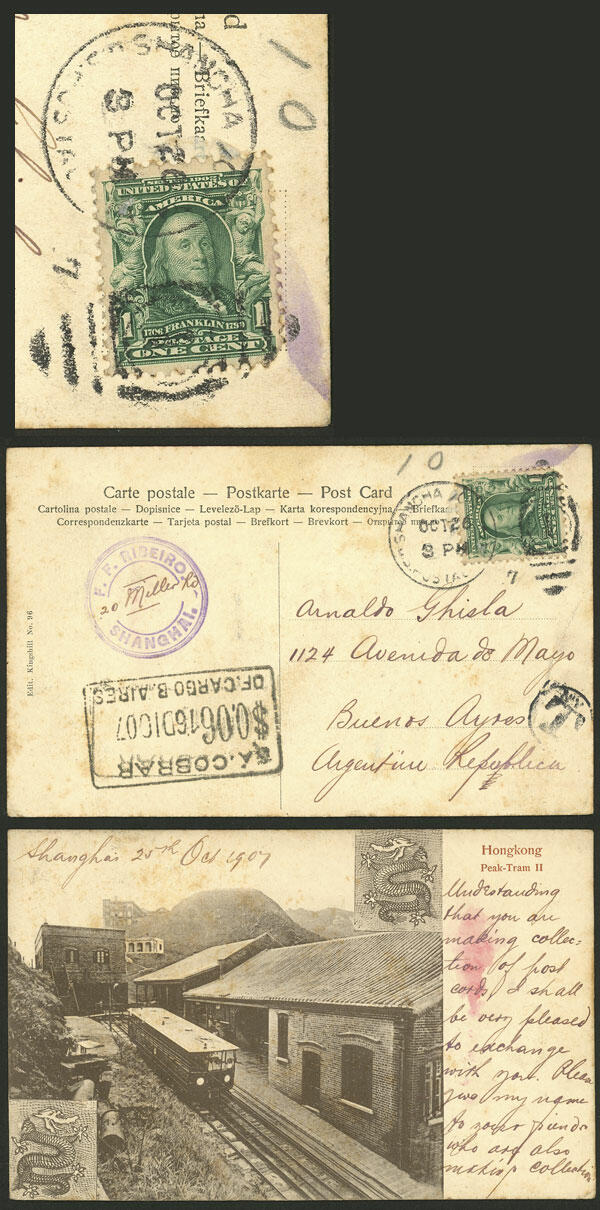 10
SHANGHA
OCT 26
8 PM
d
— Briefkaart
SERIES 1902
UNITED STATES OF
AMERICA
1706 FRANKLIN 1790
1 POSTAGE 1
ONE CENT
7
10
Carte postale — Postkarte — Post Card
Cartolina postale — Dopisnice — Levelező-Lap — Karta korespondencyjna — Briefkaart
Correspondenzkarte — Tarjeta postal — Brefkort — Brevkort —
SHANGHA
OCT 26
8 PM
7
F. F. RIBEIRO.
20 Miller Rd
SHANGHAI.
Edit. Kingshill No. 96
Arnaldo Ghisla
1124 Avenida de Mayo
Buenos Ayres
Argentine Republica
T
A. COBRAR
$0.06 16 DIC 07
OF. CARGO B. AIRES
Shanghai 25th Oct 1907
Hongkong
Peak-Tram II
Understanding
that you are
making collec-
tion of post
cords, I shall
be very pleased
to exchange
with you. Please
give my name
to your friends
who are also
making collection